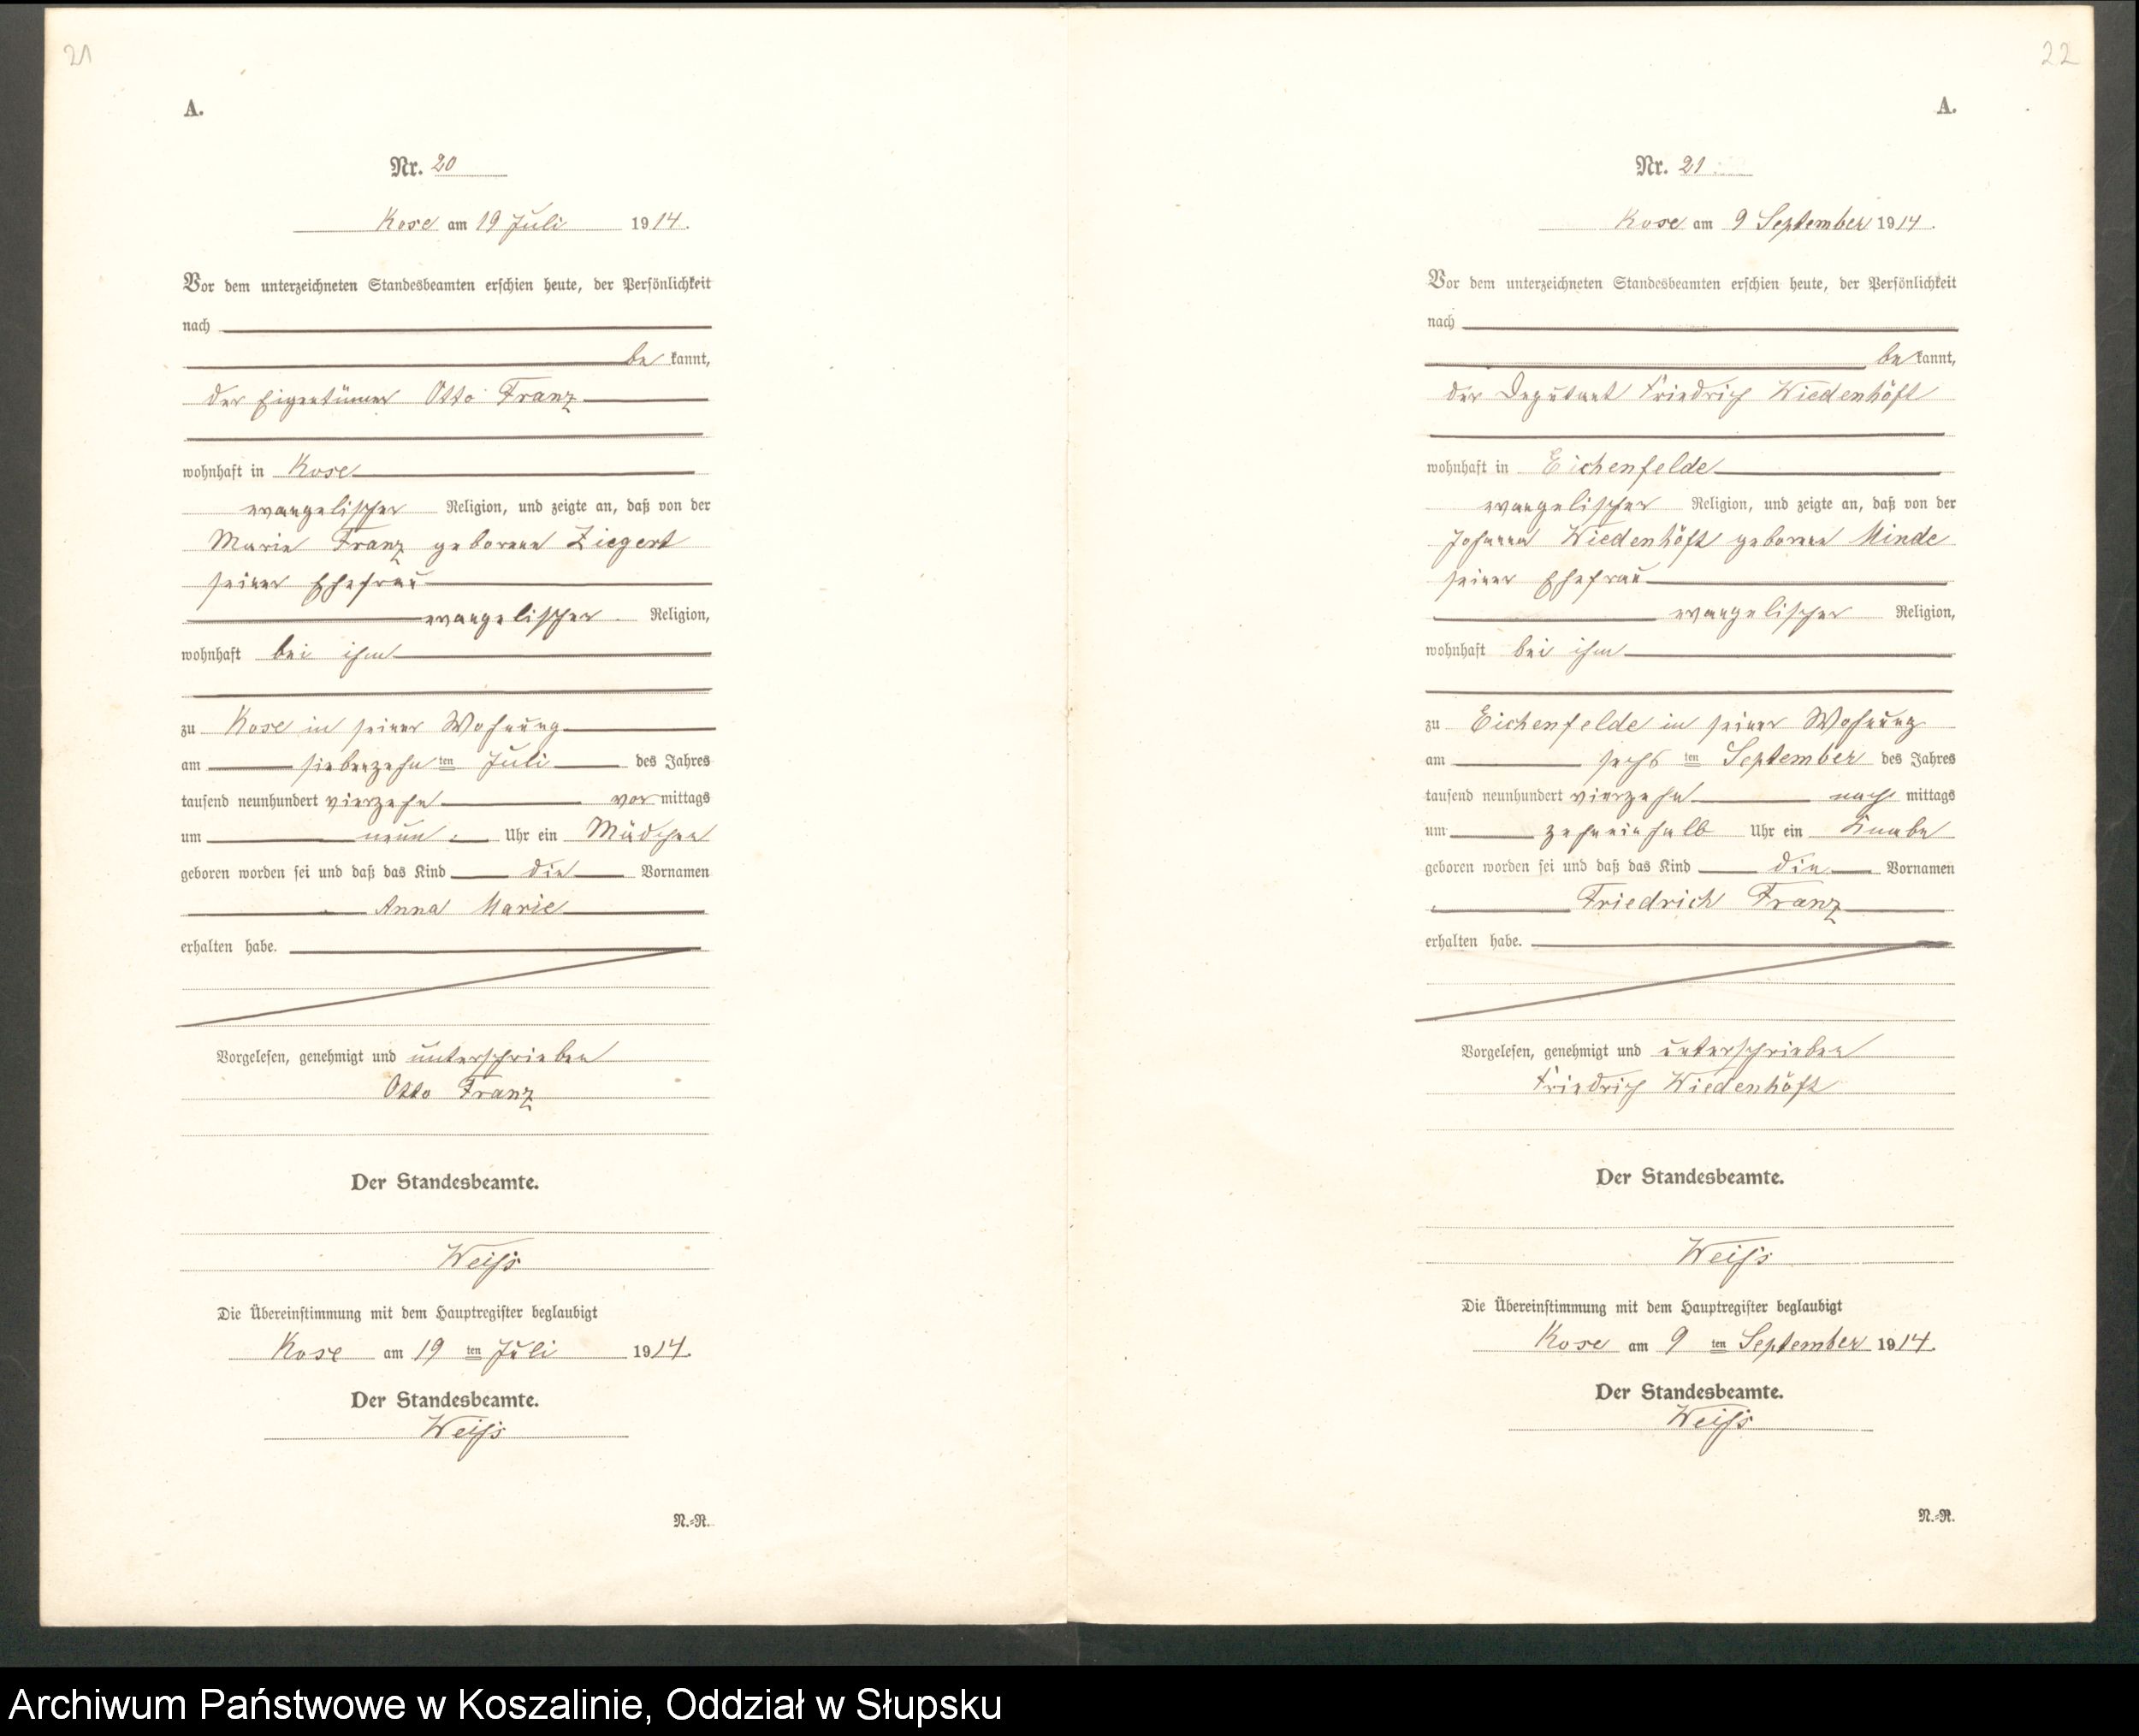 21
A.
Nr. 20
Kose am 19 Juli 1914.
Vor dem unterzeichneten Standesbeamten erschien heute, der Persönlichkeit
nach
be kannt,
der Eigentümer Otto Franz
wohnhaft in Kose
evangelischer Religion, und zeigte an, daß von der
Marie Franz geborene Ziegert
seiner Ehefrau
evangelischer Religion,
wohnhaft bei ihm
zu Kose in seiner Wohnung
am siebenzehn ten Juli des Jahres
tausend neunhundert vierzehn vor mittags
um neun Uhr ein Mädchen
geboren worden sei und daß das Kind die Vornamen
Anna Marie
erhalten habe.
Vorgelesen, genehmigt und unterschrieben
Otto Franz
Der Standesbeamte.
Weiß
Die Übereinstimmung mit dem Hauptregister beglaubigt
Kose am 19 ten Juli 1914.
Der Standesbeamte.
Weiß
N.=R.
22
A.
Nr. 21
Kose am 9 September 1914.
Vor dem unterzeichneten Standesbeamten erschien heute, der Persönlichkeit
nach
be kannt,
der Deputant Friedrich Wiedenhöft
wohnhaft in Eichenfelde
evangelischer Religion, und zeigte an, daß von der
Johanna Wiedenhöft geborene Minde
seiner Ehefrau
evangelischer Religion,
wohnhaft bei ihm
zu Eichenfelde in seiner Wohnung
am sechs ten September des Jahres
tausend neunhundert vierzehn nach mittags
um zehneinhalb Uhr ein Knabe
geboren worden sei und daß das Kind die Vornamen
Friedrich Franz
erhalten habe.
Vorgelesen, genehmigt und unterschrieben
Friedrich Wiedenhöft
Der Standesbeamte.
Weiß
Die Übereinstimmung mit dem Hauptregister beglaubigt
Kose am 9 ten September 1914.
Der Standesbeamte.
Weiß
N.=R.
Archiwum Państwowe w Koszalinie, Oddział w Słupsku